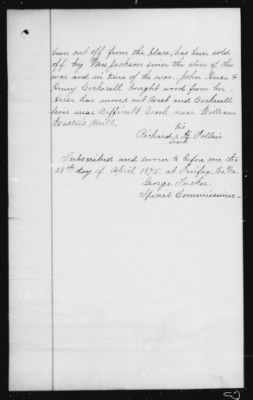 been cut off from the place, has been sold
off by Mrs Jackson since the close of the
war and in time of the war. John &
Henry Cockerell bought wood from her
has moved out West and Cockerell
lives near Difficult Creek near William
his
Richard X H.
mark
Subscribed and sworn to before me this
28th day of April 1875, at Fairfax, Co. Va.
George Tucker
Special Commissioner